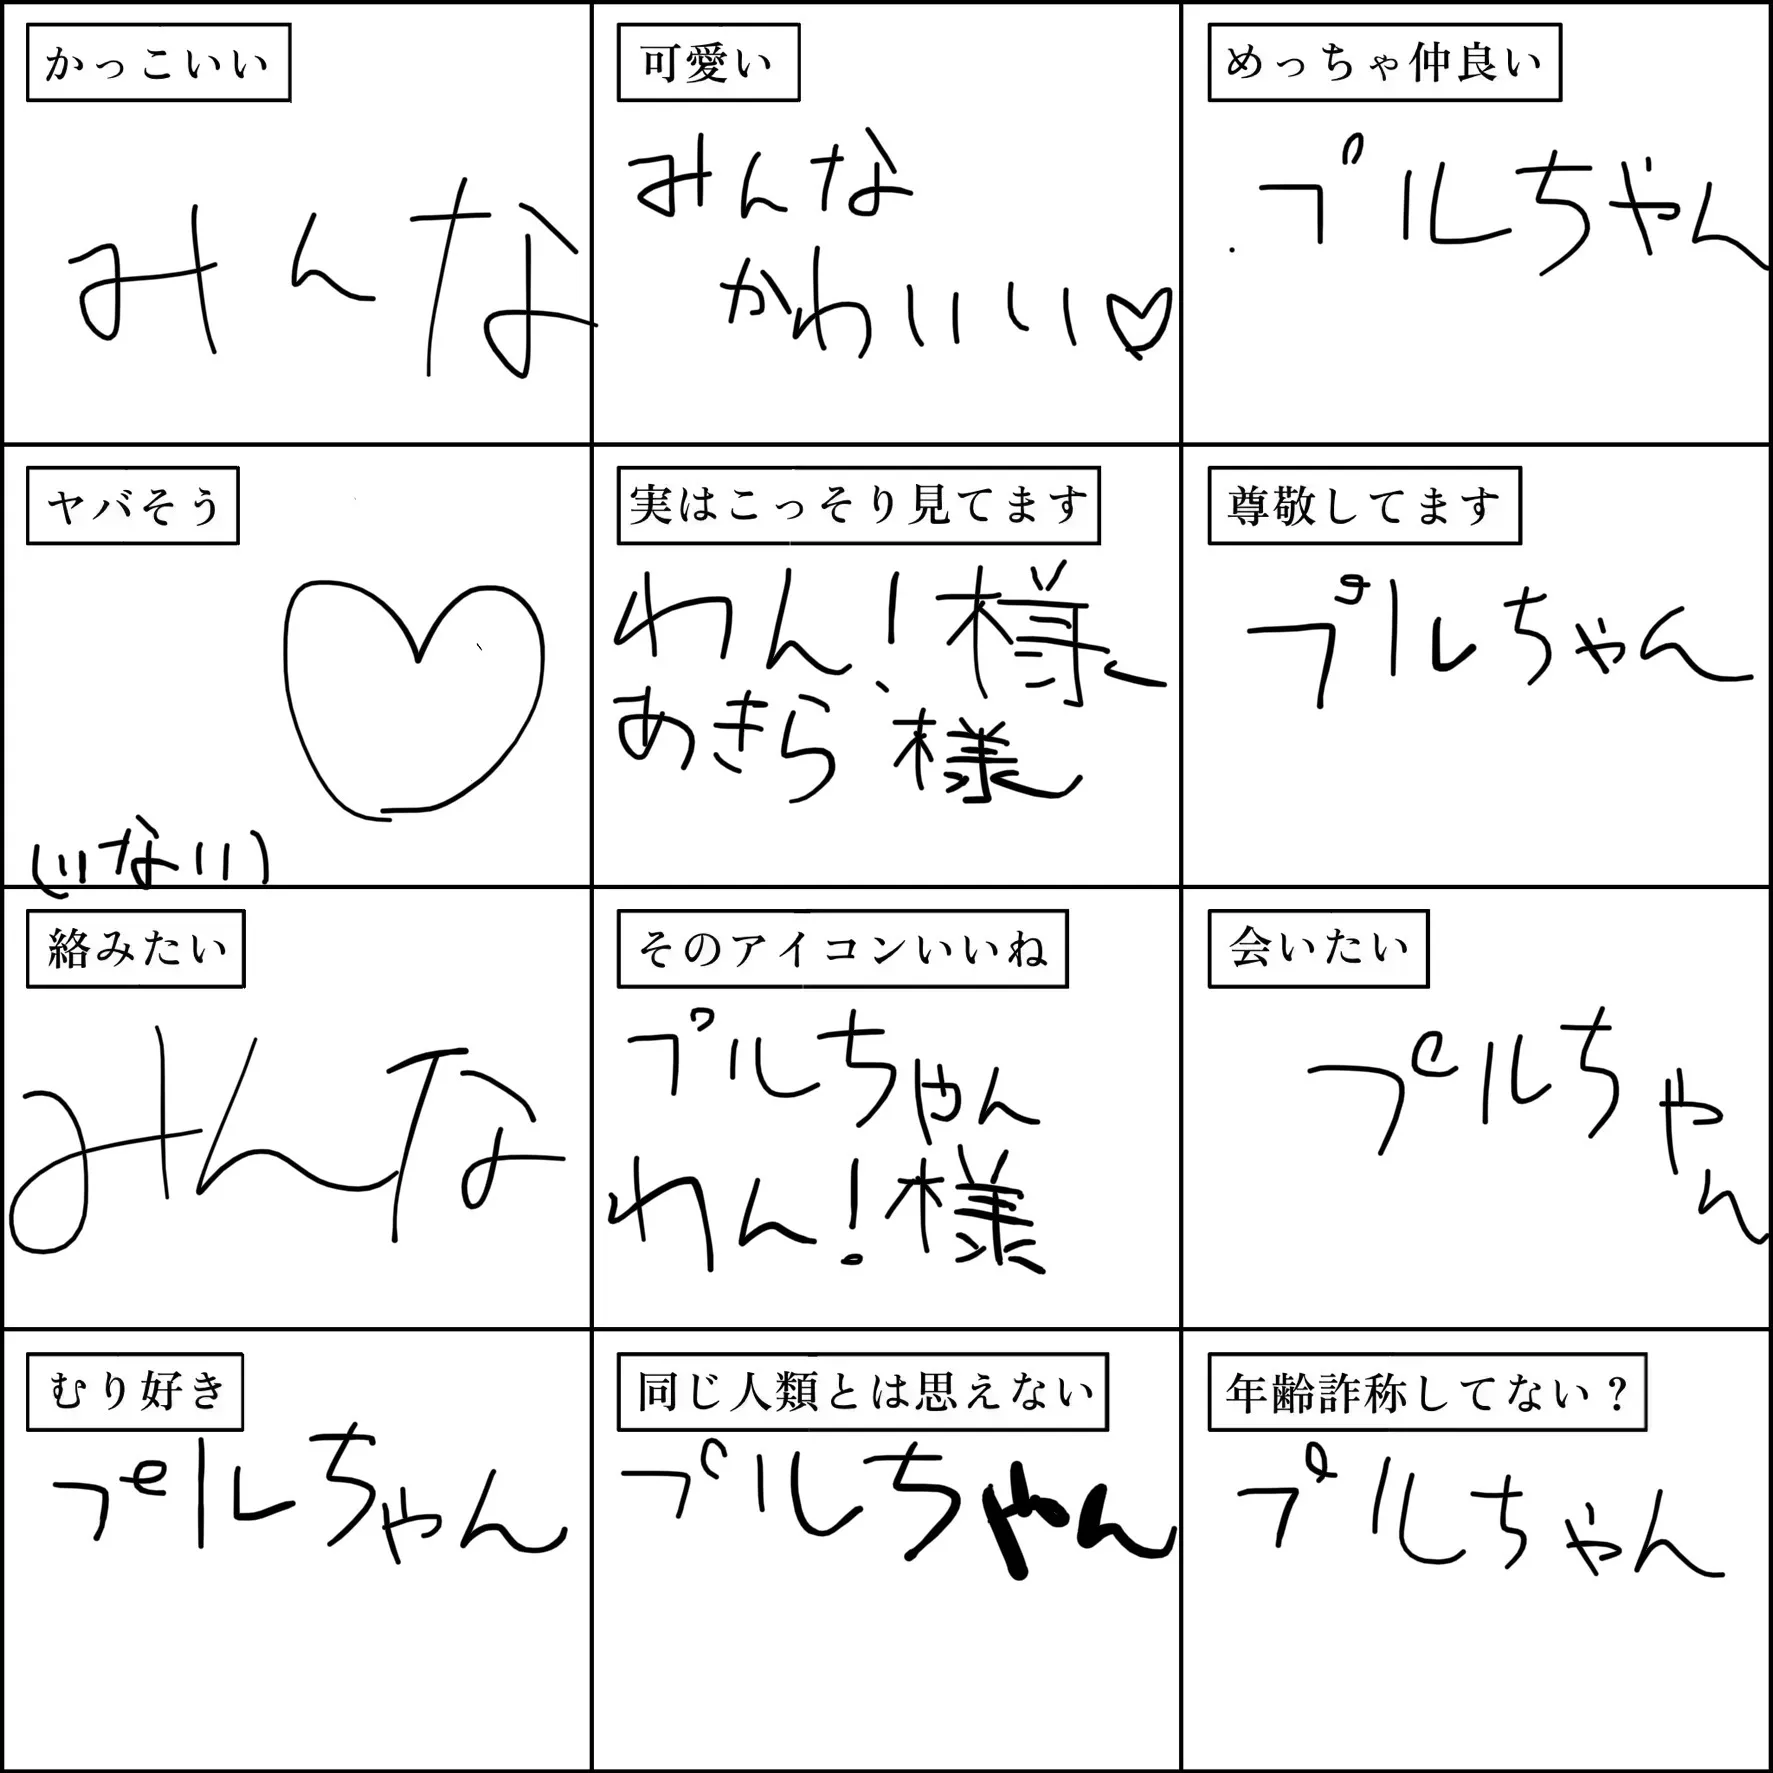 かっこいい
みんな
可愛い
みんな
かわいい♡
めっちゃ仲良い
プルちゃん
ヤバそう
いない
実はこっそり見てます
わん!様
あきら様
尊敬してます
プルちゃん
絡みたい
みんな
そのアイコンいいね
プルちゃん
わん!様
会いたい
プルちゃん
むり好き
プルちゃん
同じ人類とは思えない
プルちゃん
年齢詐称してない？
プルちゃん